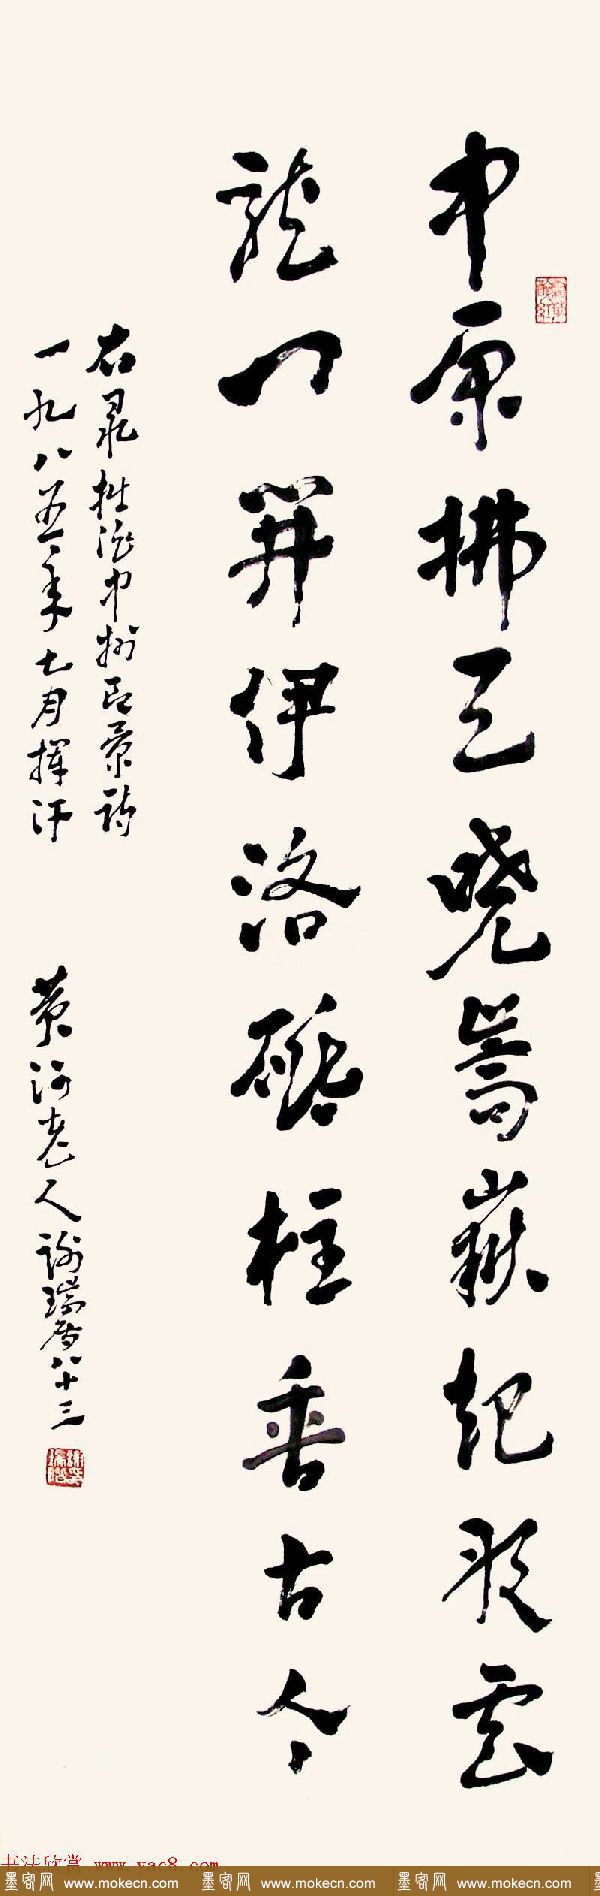 中原拂晓嵩嶽起云
龍門開伊洛砥柱古今
右拙作中州即景诗
一九八五年七月挥汗 黄河老人谢瑞阶八十三
书法欣赏 www.yac8.com
墨客网 www.mokecn.com 墨客网 www.mokecn.com 墨客网 www.mokecn.com 墨客网